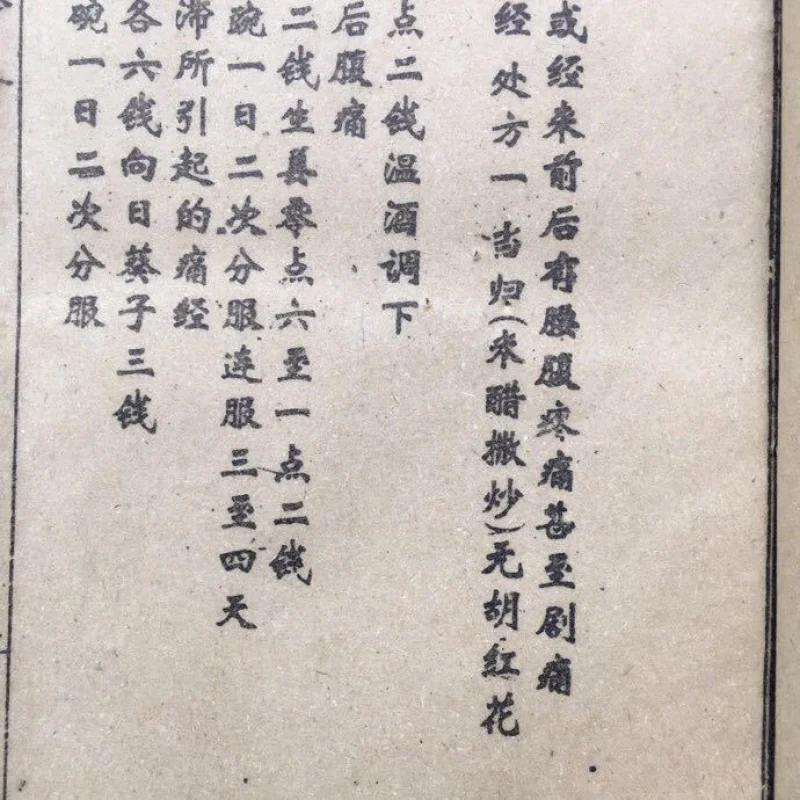 或经来前后有腰腹疼痛甚至剧痛
经 处方一 当归(米醋撒炒)元胡红花
点二钱温酒调下
后腹痛
二钱生姜零点六至一点二钱
碗一日二次分服连服三至四天
滞所引起的痛经
各六钱向日葵子三钱
碗一日二次分服